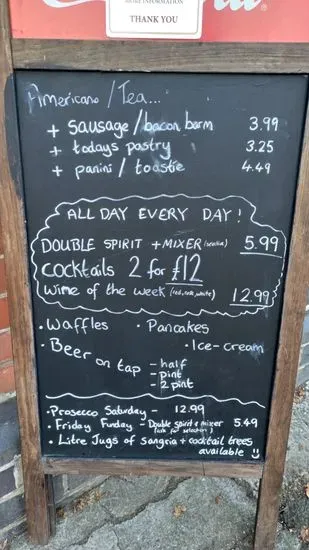 MORE INFORMATION
THANK YOU
Americano / Tea...
+ Sausage/bacon barm 3.99
+ todays pastry 3.25
+ panini / toastie 4.49
ALL DAY EVERY DAY!
DOUBLE SPIRIT + MIXER 5.99
COCKTAILS 2 for £12
Wine of the week (red, rose, white) 12.99
• Waffles • Pancakes
• Beer on tap • Ice-cream
- half
- pint
- 2 pint
• Prosecco Saturday - 12.99
• Friday Funday - Double Spirit + mixer 5.49
(ask for selection)
• Litre Jugs of Sangria + cocktail trees
available